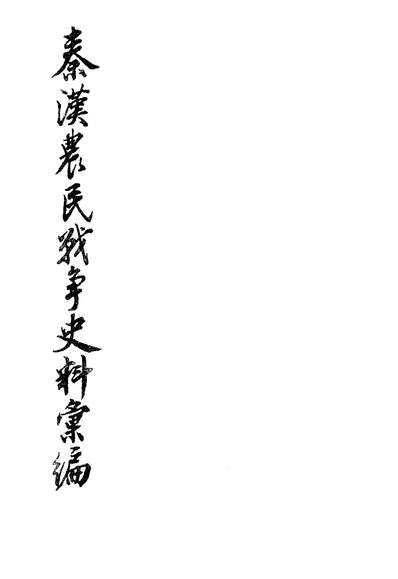 秦漢農民戰争史料彙編